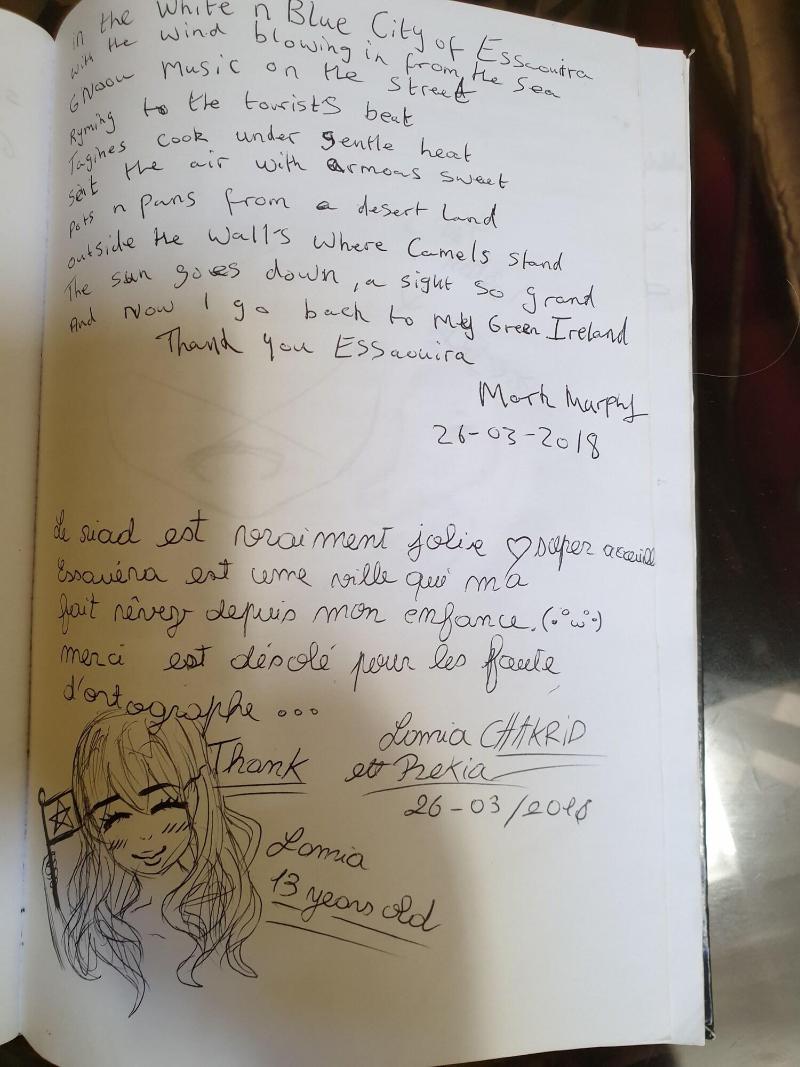 in the White n Blue City of Essaouira
with the wind blowing in from the sea
GNaou Music on the street
Ryming to the tourists beat
Tagines cook under gentle heat
sent the air with armoas sweet
pots n pans from a desert land
outside the Wall's where Camels stand
The sun goes down, a sight so grand
And Now I go back to My Green Ireland
Thank you Essaouira
Mark Murphy
26-03-2018
Le riad est vraiment jolie ♡ super accueill
Essauéra est une ville qui m'a
fait rêvez depuis mon enfance. (·°ω°·)
merci est désolé pour les faute
d'ortographe ...
Thank
Lamia CHAKRID
et Rekia
26-03/2018
Lamia
13 years old